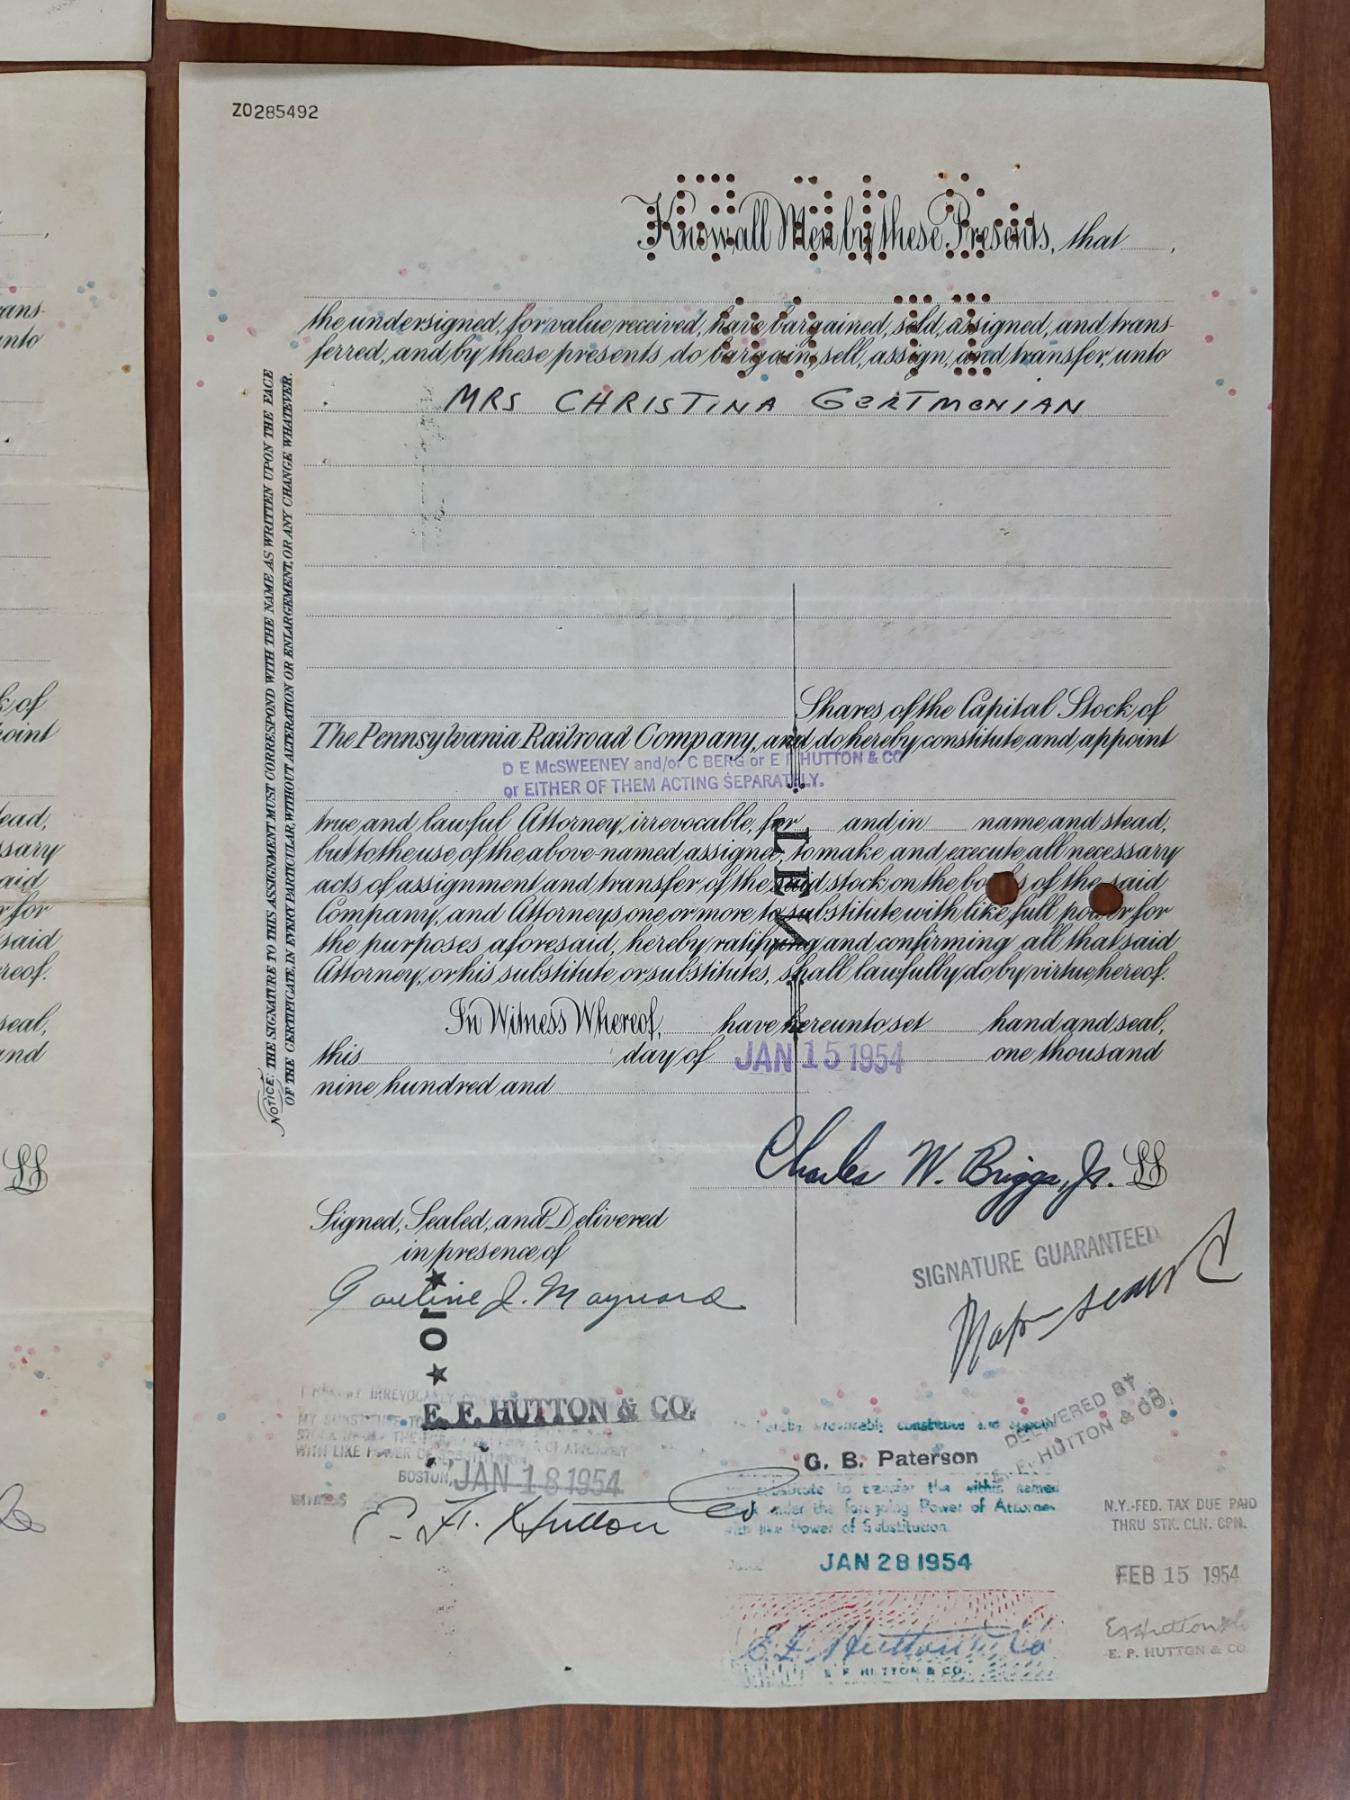 Z0285492
Know all Men by these Presents, that
the undersigned, for value received, have bargained, sold, assigned, and trans-
ferred, and by these presents do bargain, sell, assign, and transfer, unto
MRS CHRISTINA GERTMENIAN
Shares of the Capital Stock of
The Pennsylvania Railroad Company, and do hereby constitute and appoint
D E McSWEENEY and/or C BERG or E F HUTTON & CO
or EITHER OF THEM ACTING SEPARATELY.
true and lawful Attorney, irrevocable, for and in name and stead,
but to the use of the above-named assignee, to make and execute all necessary
acts of assignment and transfer of the said stock on the books of the said
Company, and Attorneys one or more to substitute with like full power for
the purposes aforesaid, hereby ratifying and confirming all that said
Attorney, or his substitute or substitutes, shall lawfully do by virtue hereof.
In Witness Whereof, have hereunto set hand and seal,
this day of JAN 15 1954 one thousand
nine hundred and
Charles W. Briggs, Jr. LS
Signed, Sealed, and Delivered
in presence of
Pauline J. Maynard
SIGNATURE GUARANTEED
★ 10 ★
E. F. HUTTON & CO.
WITH LIKE POWER OF
BOSTON, JAN 18 1954
WITNESS
E. F. Hutton Co.
hereby irrevocably constitute and appoint
G. B. Paterson
substitute to transfer the within named
under the foregoing Power of Attorney
with like Power of Substitution.
JAN 28 1954
E F Hutton & Co
E F HUTTON & CO.
DELIVERED BY
E. F. HUTTON & CO.
N.Y.-FED. TAX DUE PAID
THRU STK. CLN. CPN.
FEB 15 1954
E F Hutton & Co
E. F. HUTTON & CO.
NOTICE: THE SIGNATURE TO THIS ASSIGNMENT MUST CORRESPOND WITH THE NAME AS WRITTEN UPON THE FACE
OF THE CERTIFICATE, IN EVERY PARTICULAR, WITHOUT ALTERATION OR ENLARGEMENT, OR ANY CHANGE WHATEVER.